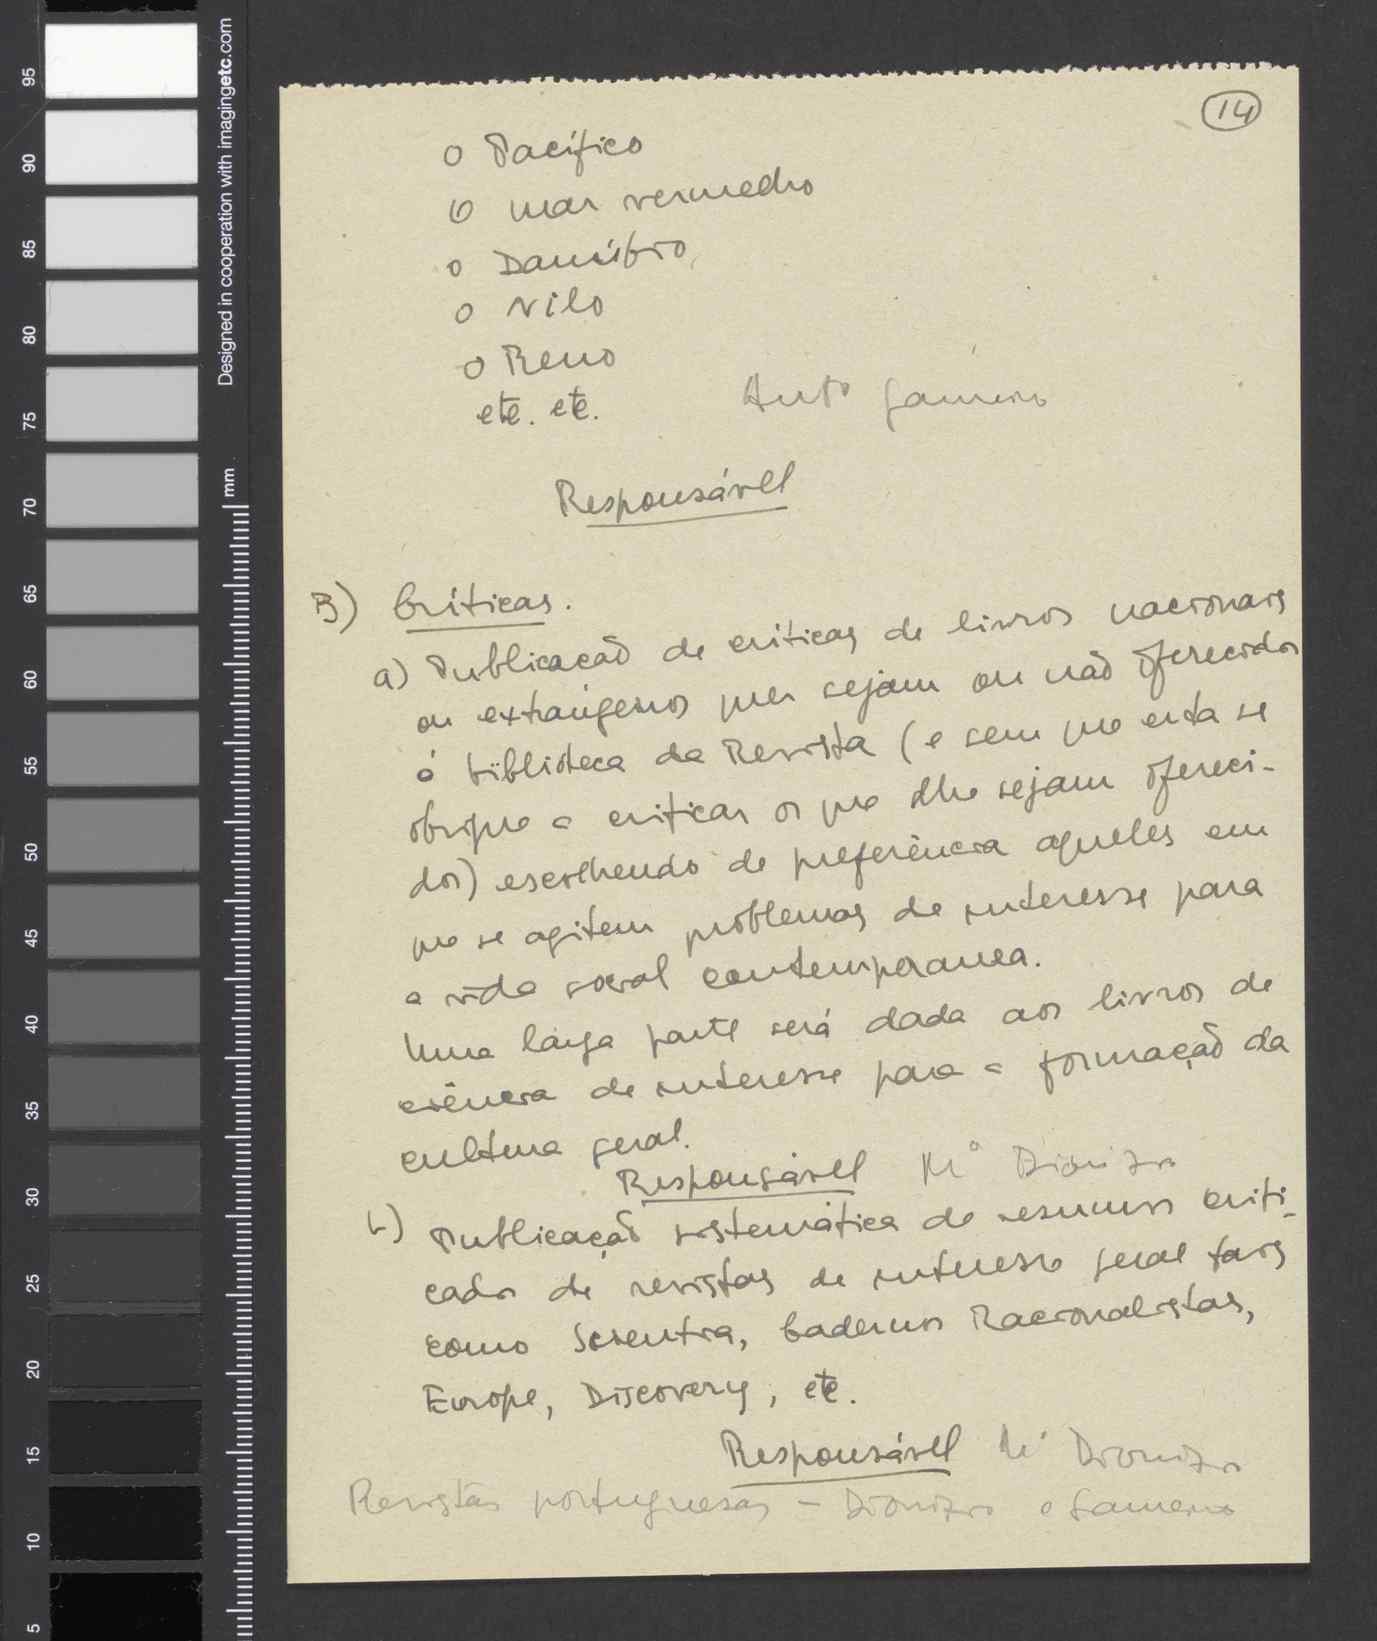 14
o Pacífico
o mar vermelho
o Danúbio
o Nilo
o Reno
etc. etc. Antº Gameiro
Responsável
B) Críticas.
a) Publicação de críticas de livros nacionais
ou extrangeiros quer sejam ou não oferecidos
á biblioteca da Revista (e sem que esta se
obrigue a criticar os que lhe sejam ofereci-
dos) escolhendo de preferência aqueles em
que se agitem problemas de interesse para
a vida social contemporanea.
Uma larga parte será dada aos livros de
ciência de interesse para a formação da
cultura geral.
Responsável Mº Dionizio
b) Publicação sistemática de resumos criti-
cados de revistas de interesse geral tais
como Scientia, Cadernos Racionalistas,
Europe, Discovery, etc.
Responsável Mº Dionizio
Revistas portuguesas – Dionizio e Gameiro
95
90
85
80
75
70
65
60
55
50
45
40
35
30
25
20
15
10
5
Designed in cooperation with imagingetc.com
mm